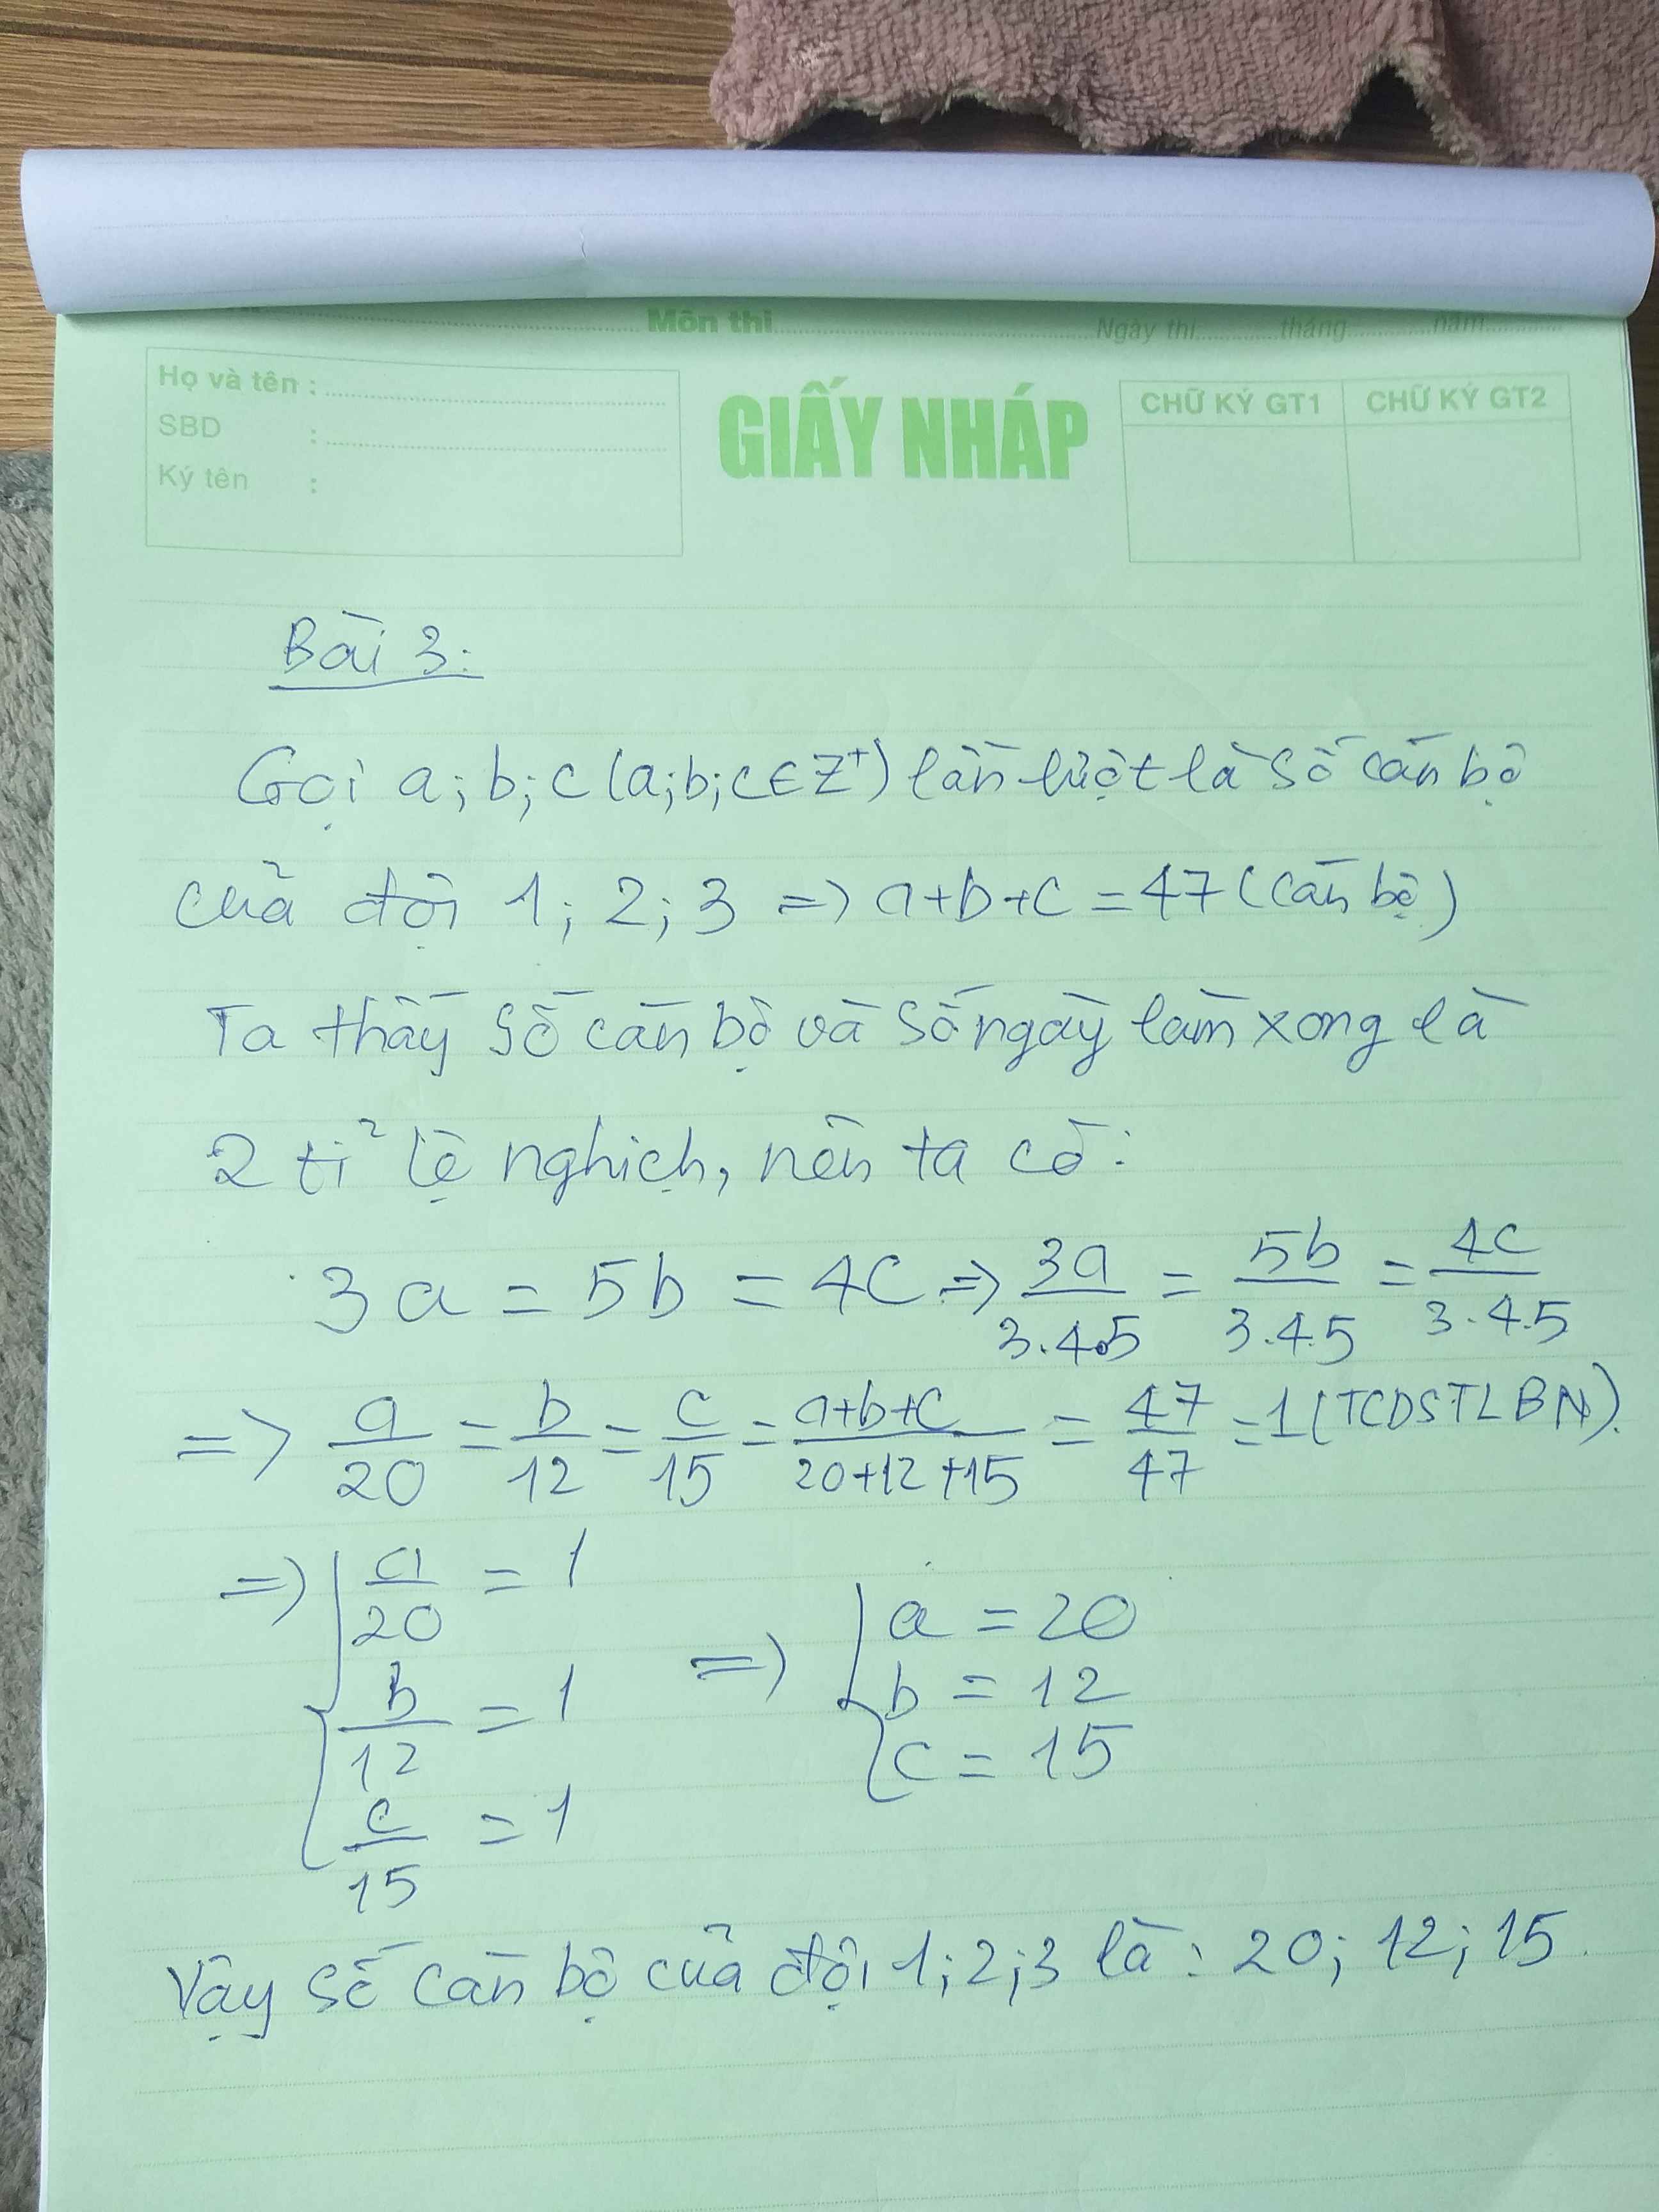 Môn thi
Ngày thi tháng năm
Họ và tên :
SBD :
Ký tên :
GIẤY NHÁP
CHỮ KÝ GT1
CHỮ KÝ GT2
Bài 3:
Gọi a; b; c (a; b; c ∈ Z⁺) lần lượt là số cán bộ
của đội 1; 2; 3 => a+b+c = 47 (cán bộ)
Ta thấy số cán bộ và số ngày làm xong là
2 tỉ lệ nghịch, nên ta có:
3a = 5b = 4c => 3a/3.4.5 = 5b/3.4.5 = 4c/3.4.5
=> a/20 = b/12 = c/15 = a+b+c/20+12+15 = 47/47 = 1 (TCDSTLBN).
=> { a/20 = 1
b/12 = 1
c/15 = 1
=> { a = 20
b = 12
c = 15
Vậy số cán bộ của đội 1; 2; 3 là: 20; 12; 15.